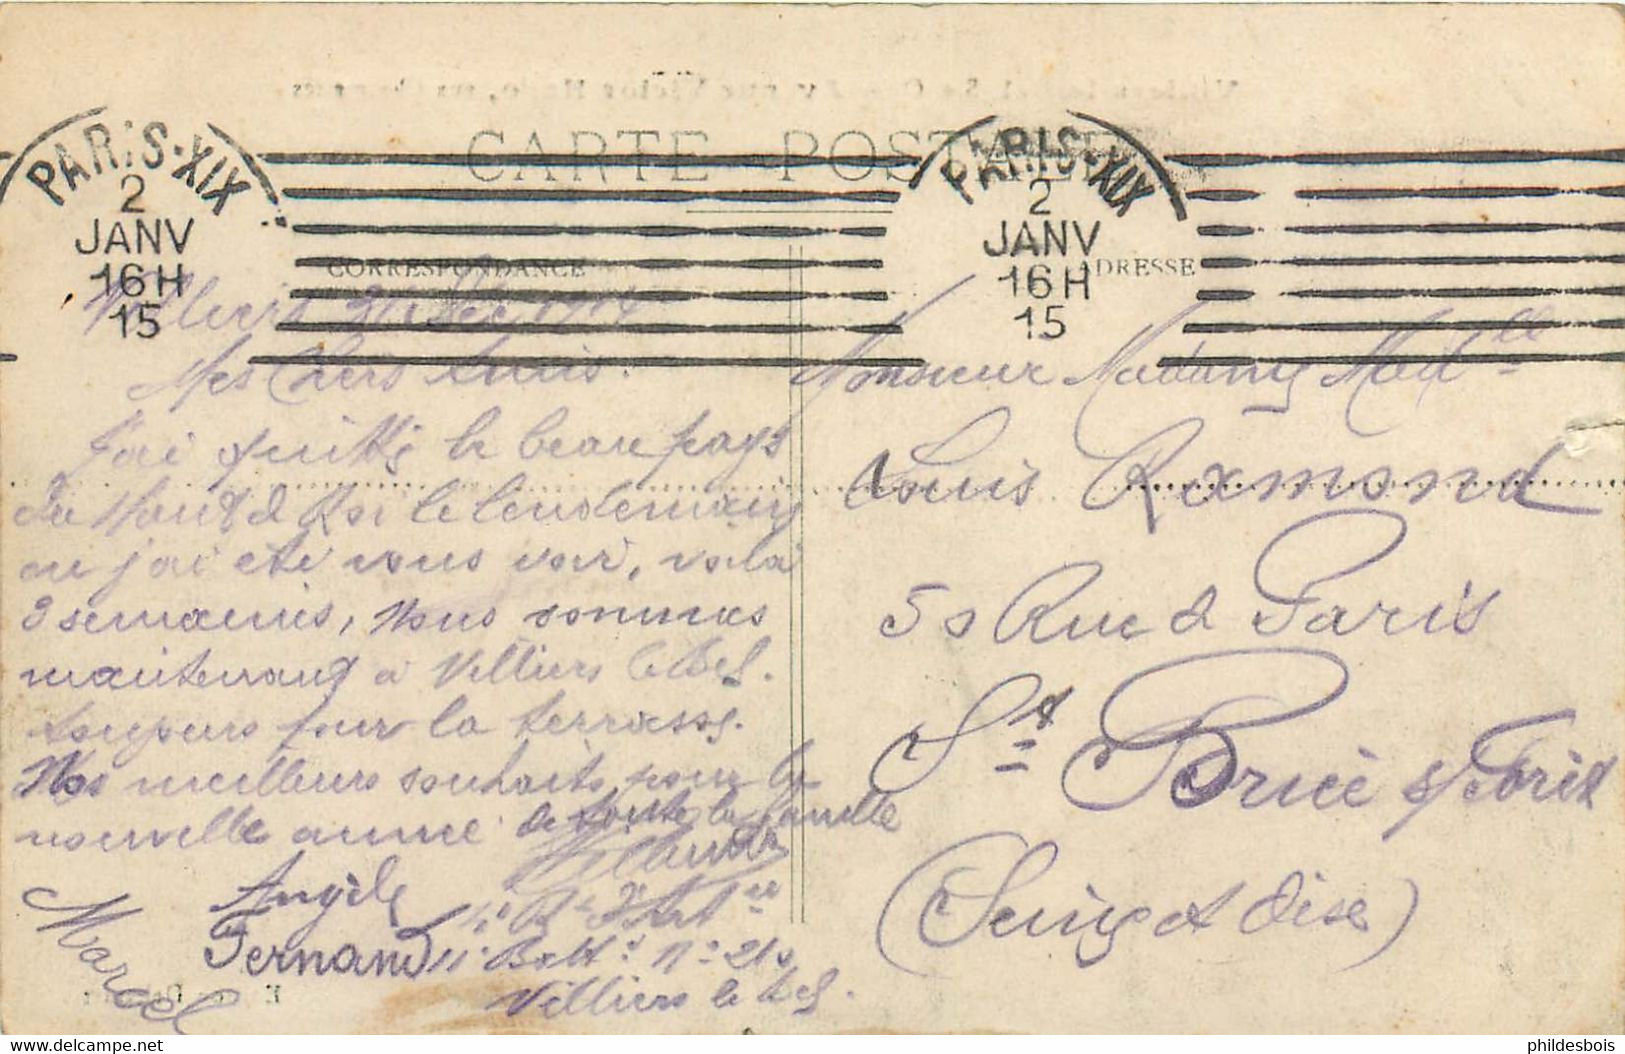 CARTE POSTALE
PARIS·XIX
2
JANV
16H
15
PARIS·XIX
2
JANV
16H
15
CORRESPONDANCE
ADRESSE
Villiers 31 Déc 1914
Mes Chers Amis.
J'ai quitté le beau pays
du Haut d Roi le lendemain
ou j'ai été vous voir, voila
3 semaines, Nous sommes
maintenant a Villiers le Bel.
toujours pour la terrasse.
Nos meilleurs souhaits pour la
nouvelle année de toute la famille
Angèle
Fernand
Marcel
11e Battie No 210
Villiers le Bel.
Monsieur Madame Madlle
Louis Ramond
50 Rue d Paris
St Brice s/ Foret
(Seine et Oise)
delcampe.net
phildesbois